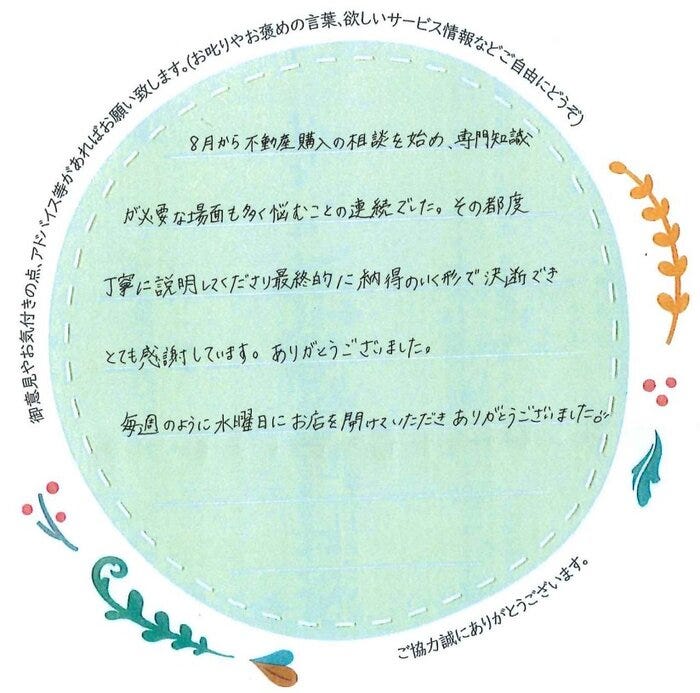 御意見やお気付きの点、アドバイス等があればお願い致します。(お叱りやお褒めの言葉、欲しいサービス情報などご自由にどうぞ)
8月から不動産購入の相談を始め、専門知識
が必要な場面も多く悩むことの連続でした。その都度
丁寧に説明してくださり最終的に納得のいく形で決断でき
とても感謝しています。ありがとうございました。
毎週のように水曜日にお店を開けていただきありがとうございました。
ご協力誠にありがとうございます。